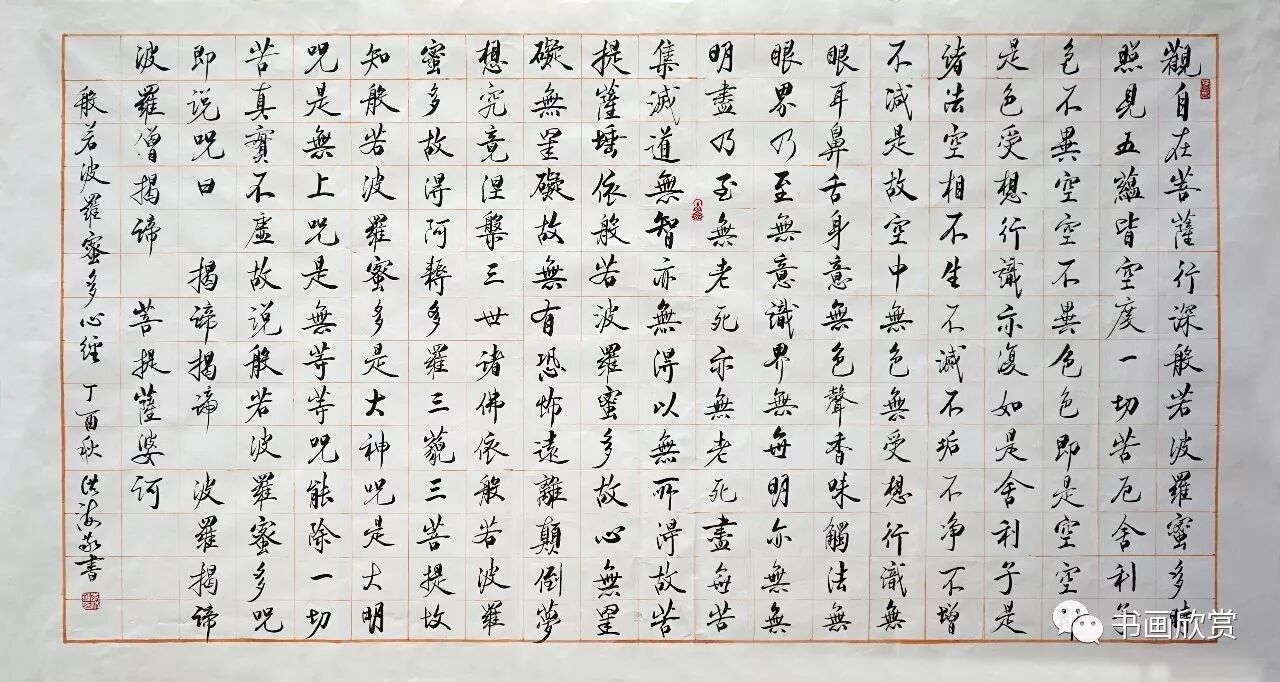 觀自在菩薩行深般若波羅蜜多時
照見五蘊皆空度一切苦厄舍利子
色不異空空不異色色即是空空
是色受想行識亦復如是舍利子是
諸法空相不生不滅不垢不净不增
不減是故空中無色無受想行識無
眼耳鼻舌身意無色聲香味觸法無
眼界乃至無意識界無無明亦無無
明盡乃至無老死亦無老死盡無苦
集滅道無智亦無得以無所得故菩
提薩埵依般若波羅蜜多故心無罣
礙無罣礙故無有恐怖遠離顛倒夢
想究竟涅槃三世諸佛依般若波羅
蜜多故得阿耨多羅三藐三菩提故
知般若波羅蜜多是大神咒是大明
咒是無上咒是無等等咒能除一切
苦真實不虛故說般若波羅蜜多咒
即說咒曰 揭諦揭諦 波羅揭諦
波羅僧揭諦 菩提薩婆訶
般若波羅蜜多心經 丁酉秋 洪海敬書
书画欣赏